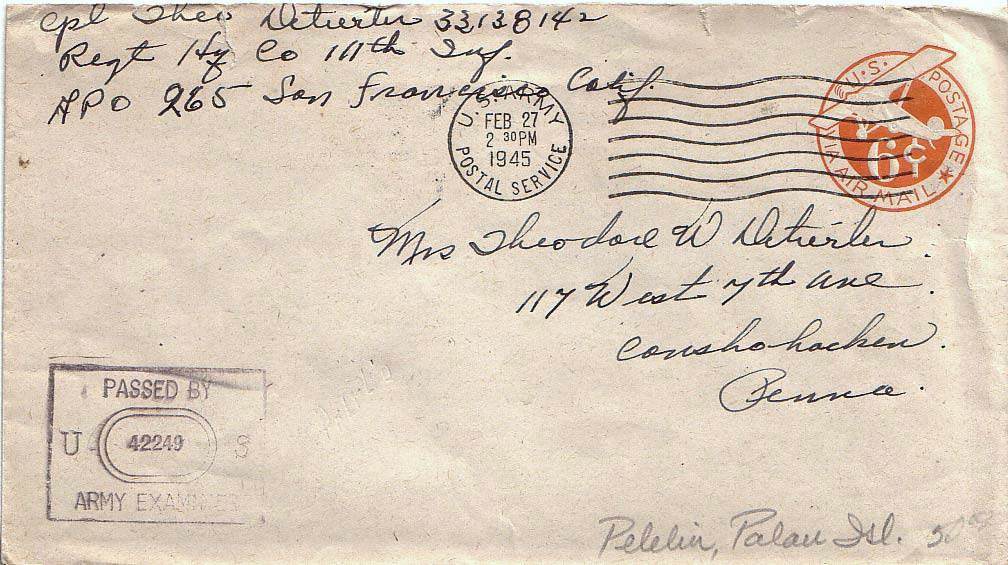 Cpl Theo Deterter 33138142
Regt Hq Co 111th Inf.
APO 265 San Francisco Calif.
U.S. ARMY
FEB 27
2 30 PM
1945
POSTAL SERVICE
U.S. POSTAGE
6¢
VIA AIR MAIL
Mrs Theodore W
117 West 7th Ave.
Conshohocken.
Penna.
PASSED BY
U 42249 S
ARMY EXAMINER
Peleliu, Palau Isl.